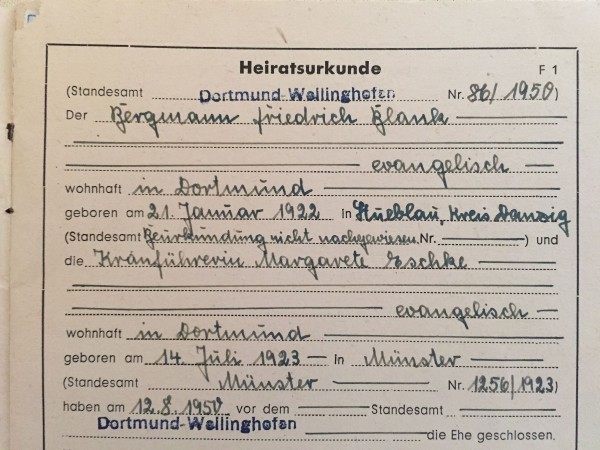 Heiratsurkunde F 1
(Standesamt Dortmund-Wellinghofen Nr. 86/1950)
Der Bergmann Friedrich Blank
evangelisch
wohnhaft in Dortmund
geboren am 21. Januar 1922 in Stueblau, Kreis Danzig
(Standesamt Beurkundung nicht nachgewiesen Nr. ) und
die Kranführerin Margarete Eschke
evangelisch
wohnhaft in Dortmund
geboren am 14. Juli 1923 in Münster
(Standesamt Münster Nr. 1256/1923)
haben am 12.8.1950 vor dem Standesamt
Dortmund-Wellinghofen die Ehe geschlossen.